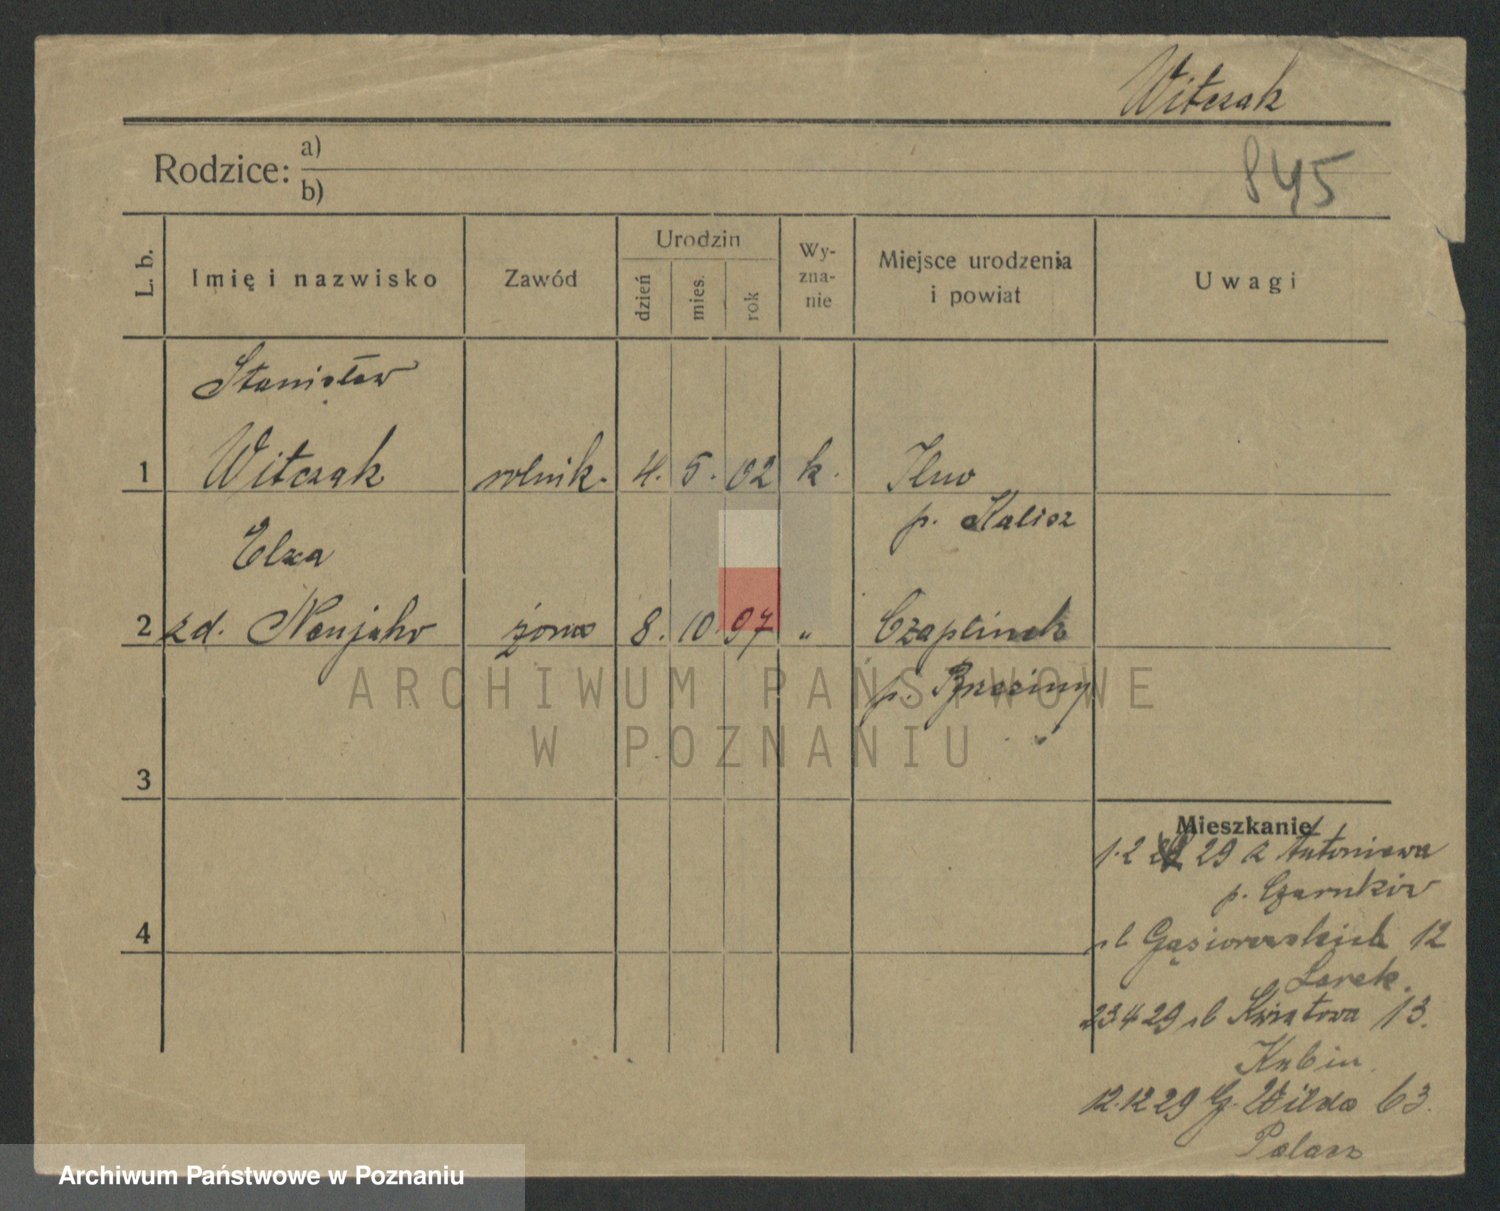 Witczak
Rodzice: a)
b)
845
L. b.
Imię i nazwisko
Zawód
Urodzin
dzień
mies.
rok
Wy-
zna-
nie
Miejsce urodzenia
i powiat
Uwagi
Stanisław
1 Witczak rolnik. 4. 5. 02 k.
p. Kalisz
Elza
2 zd. żona 8. 10. 97 " Czaplinek
p. Brzeziny
ARCHIWUM PAŃSTWOWE
W POZNANIU
3
Mieszkanie
1.2 29 z Antoniewa
p. Czarnków
4
Gąsiorowskich 12
23.4 29 Kwiatowa 13.
Kubiu
12.12 29 G. Wilda 63.
Palacz
Archiwum Państwowe w Poznaniu